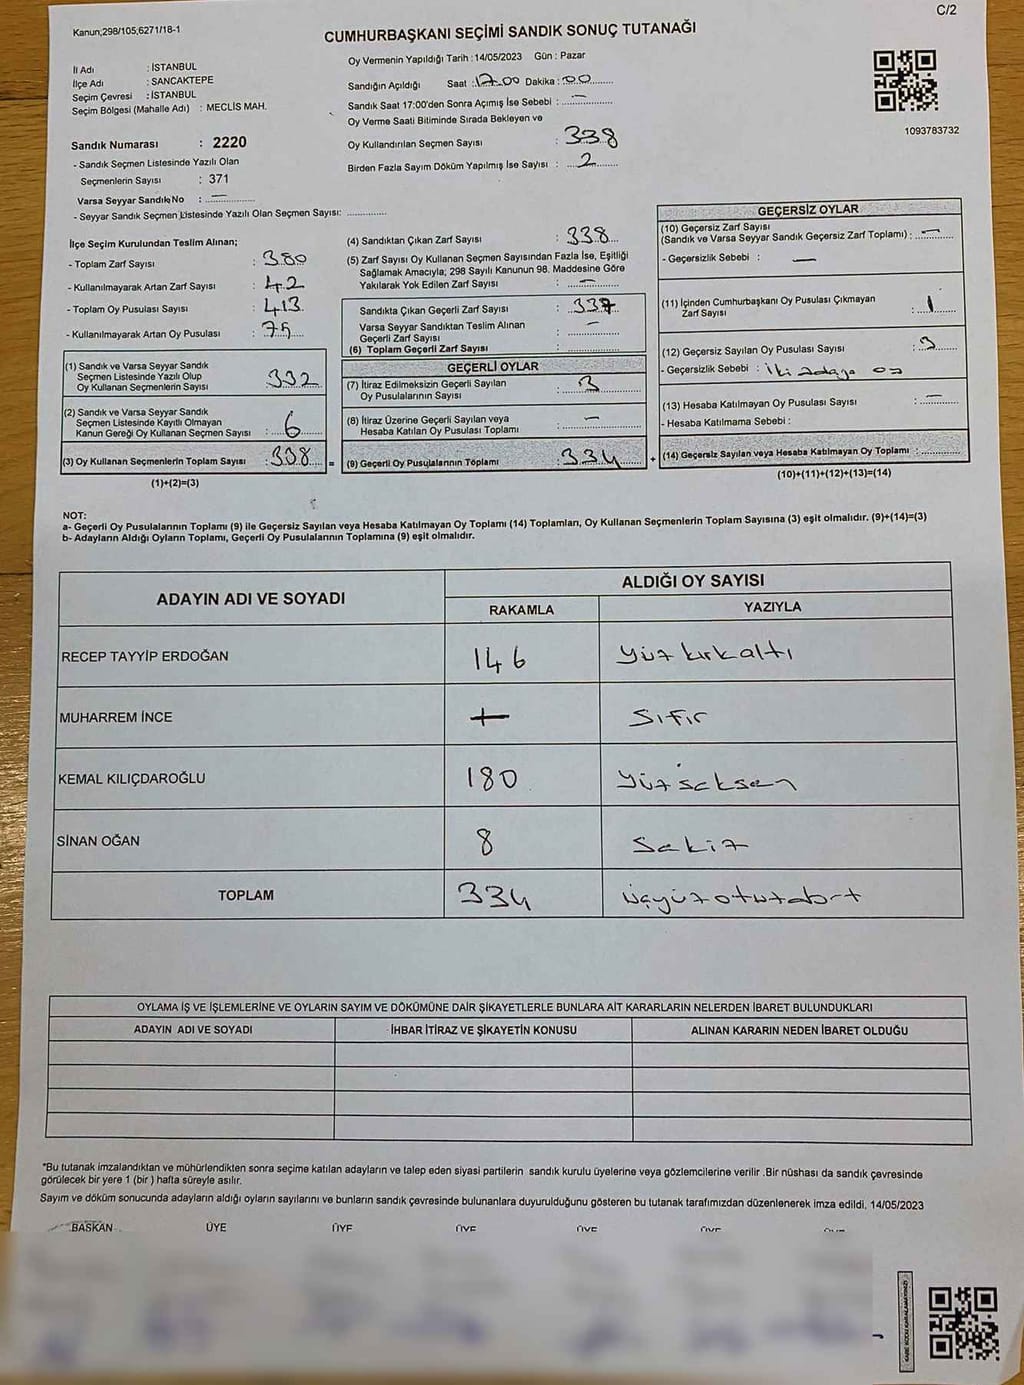 Kanun;298/105;6271/18-1
C/2
CUMHURBAŞKANI SEÇİMİ SANDIK SONUÇ TUTANAĞI
İl Adı : İSTANBUL
İlçe Adı : SANCAKTEPE
Seçim Çevresi : İSTANBUL
Seçim Bölgesi (Mahalle Adı) : MECLİS MAH.
Sandık Numarası : 2220
- Sandık Seçmen Listesinde Yazılı Olan
Seçmenlerin Sayısı : 371
Varsa Seyyar Sandık No : —
- Seyyar Sandık Seçmen Listesinde Yazılı Olan Seçmen Sayısı: ..............
Oy Vermenin Yapıldığı Tarih : 14/05/2023 Gün : Pazar
Sandığın Açıldığı Saat : 17.00 Dakika : 00
Sandık Saat 17:00'den Sonra Açımış İse Sebebi : —
Oy Verme Saati Bitiminde Sırada Bekleyen ve
Oy Kullandırılan Seçmen Sayısı : 338
Birden Fazla Sayım Döküm Yapılmış İse Sayısı : 2
1093783732
İlçe Seçim Kurulundan Teslim Alınan;
- Toplam Zarf Sayısı : 380
- Kullanılmayarak Artan Zarf Sayısı : 42
- Toplam Oy Pusulası Sayısı : 413
- Kullanılmayarak Artan Oy Pusulası : 75
(1) Sandık ve Varsa Seyyar Sandık
Seçmen Listesinde Yazılı Olup
Oy Kullanan Seçmenlerin Sayısı : 332
(2) Sandık ve Varsa Seyyar Sandık
Seçmen Listesinde Kayıtlı Olmayan
Kanun Gereği Oy Kullanan Seçmen Sayısı : 6
(3) Oy Kullanan Seçmenlerin Toplam Sayısı : 338 =
(1)+(2)=(3)
(4) Sandıktan Çıkan Zarf Sayısı : 338
(5) Zarf Sayısı Oy Kullanan Seçmen Sayısından Fazla İse, Eşitliği
Sağlamak Amacıyla; 298 Sayılı Kanunun 98. Maddesine Göre
Yakılarak Yok Edilen Zarf Sayısı : —
Sandıkta Çıkan Geçerli Zarf Sayısı : 337
Varsa Seyyar Sandıktan Teslim Alınan
Geçerli Zarf Sayısı : —
(6) Toplam Geçerli Zarf Sayısı : ..............
GEÇERLİ OYLAR
(7) İtiraz Edilmeksizin Geçerli Sayılan
Oy Pusulalarının Sayısı : 3
(8) İtiraz Üzerine Geçerli Sayılan veya
Hesaba Katılan Oy Pusulası Toplamı : —
(9) Geçerli Oy Pusulalarının Toplamı : 334 +
GEÇERSİZ OYLAR
(10) Geçersiz Zarf Sayısı
(Sandık ve Varsa Seyyar Sandık Geçersiz Zarf Toplamı) : —
- Geçersizlik Sebebi : —
(11) İçinden Cumhurbaşkanı Oy Pusulası Çıkmayan
Zarf Sayısı : 1
(12) Geçersiz Sayılan Oy Pusulası Sayısı : 3
- Geçersizlik Sebebi : iki adaya oy
(13) Hesaba Katılmayan Oy Pusulası Sayısı : —
- Hesaba Katılmama Sebebi :
(14) Geçersiz Sayılan veya Hesaba Katılmayan Oy Toplamı : ..............
(10)+(11)+(12)+(13)=(14)
NOT:
a- Geçerli Oy Pusulalarının Toplamı (9) ile Geçersiz Sayılan veya Hesaba Katılmayan Oy Toplamı (14) Toplamları, Oy Kullanan Seçmenlerin Toplam Sayısına (3) eşit olmalıdır. (9)+(14)=(3)
b- Adayların Aldığı Oyların Toplamı, Geçerli Oy Pusulalarının Toplamına (9) eşit olmalıdır.
ADAYIN ADI VE SOYADI
ALDIĞI OY SAYISI
RAKAMLA YAZIYLA
RECEP TAYYİP ERDOĞAN 146 yüz kırkaltı
MUHARREM İNCE — sıfır
KEMAL KILIÇDAROĞLU 180 yüz seksen
SİNAN OĞAN 8 sekiz
TOPLAM 334 üçyüzotuzdört
OYLAMA İŞ VE İŞLEMLERİNE VE OYLARIN SAYIM VE DÖKÜMÜNE DAİR ŞİKAYETLERLE BUNLARA AİT KARARLARIN NELERDEN İBARET BULUNDUKLARI
ADAYIN ADI VE SOYADI İHBAR İTİRAZ VE ŞİKAYETİN KONUSU ALINAN KARARIN NEDEN İBARET OLDUĞU
"Bu tutanak imzalandıktan ve mühürlendikten sonra seçime katılan adayların ve talep eden siyasi partilerin sandık kurulu üyelerine veya gözlemcilerine verilir .Bir nüshası da sandık çevresinde
görülecek bir yere 1 (bir ) hafta süreyle asılır.
Sayım ve döküm sonucunda adayların aldığı oyların sayılarını ve bunların sandık çevresinde bulunanlara duyurulduğunu gösteren bu tutanak tarafımızdan düzenlenerek imza edildi. 14/05/2023
BAŞKAN ÜYE ÜYE ÜYE ÜYE